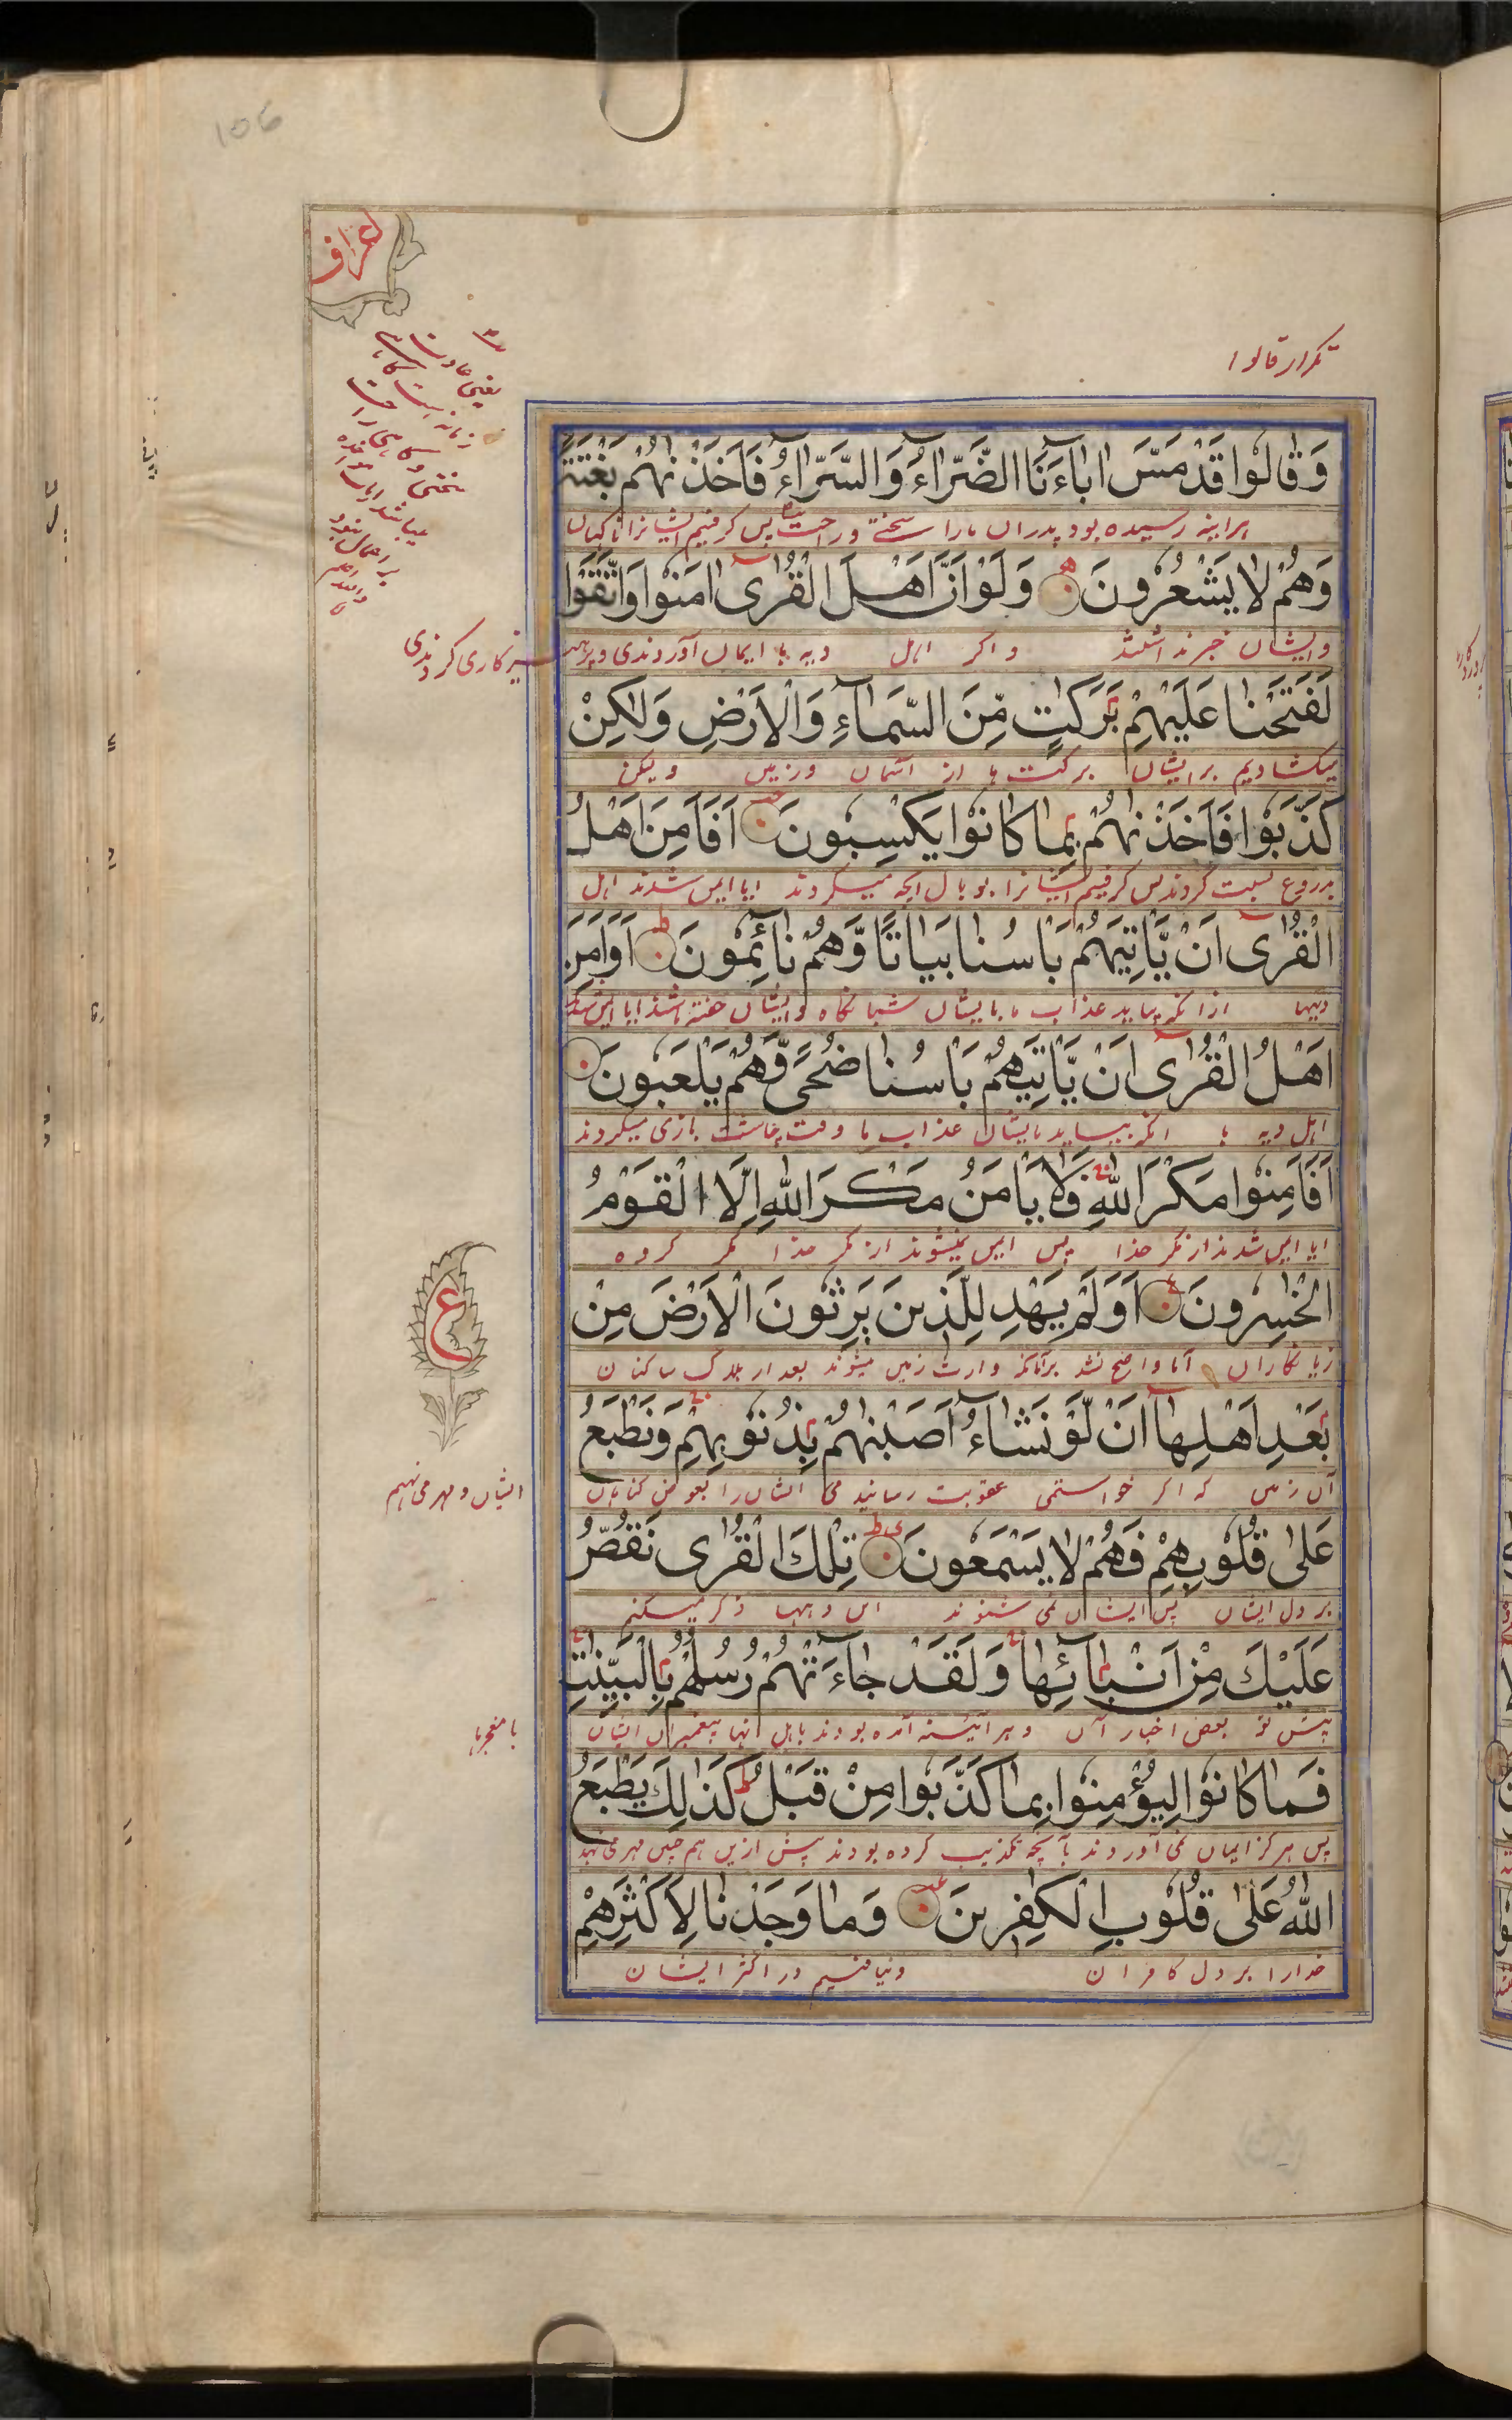 106
اعراف
تکرار قالوا
وَقَالُوا قَدْ مَسَّ اٰبَاءَنَا الضَّرَّاءُ وَالسَّرَّاءُ فَاَخَذْنٰهُمْ بَغْتَةً
هراینه رسیده بود پدران مارا سختی و راحت پس گرفتیم ایشانرا ناگهان
وَهُمْ لَا يَشْعُرُونَ وَلَوْ اَنَّ اَهْلَ الْقُرٰى اٰمَنُوا وَاتَّقَوْا
وایشان خبر نداشتند و اگر اهل دیه ها ایمان آوردندی و پرهیزکاری کردندی
لَفَتَحْنَا عَلَيْهِمْ بَرَكٰتٍ مِّنَ السَّمَاءِ وَالْاَرْضِ وَلٰكِنْ
میکشادیم برایشان برکت ها از آسمان و زمین ولیکن
كَذَّبُوا فَاَخَذْنٰهُمْ بِمَا كَانُوا يَكْسِبُونَ اَفَاَمِنَ اَهْلُ
بدروغ نسبت کردند پس گرفتیم ایشانرا بوبال انچه میکردند ایا ایمن شدند اهل
الْقُرٰى اَنْ يَّاْتِيَهُمْ بَاْسُنَا بَيَاتًا وَّهُمْ نَائِمُونَ اَوَاَمِنَ
دیهها ازانکه بیاید عذاب ما بایشان شبانگاه وایشان خفته باشند ایا ایمن شدند
اَهْلُ الْقُرٰى اَنْ يَّاْتِيَهُمْ بَاْسُنَا ضُحًى وَّهُمْ يَلْعَبُونَ
اهل دیه ها انکه بیاید بایشان عذاب ما وقت چاشت بازی میکردند
اَفَاَمِنُوا مَكْرَ اللّٰهِ فَلَا يَاْمَنُ مَكْرَ اللّٰهِ اِلَّا الْقَوْمُ
ایا ایمن شدند از مکر خدا پس ایمن نمیشوند از مکر خدا مگر گروه
الْخٰسِرُونَ اَوَلَمْ يَهْدِ لِلَّذِينَ يَرِثُونَ الْاَرْضَ مِنْ
زیانکاران آیا واضح نشد برآنانکه وارث زمین میشوند بعد از هلاک ساکنان
بَعْدِ اَهْلِهَا اَنْ لَّوْ نَشَاءُ اَصَبْنٰهُمْ بِذُنُوبِهِمْ وَنَطْبَعُ
آن زمین که اگر خواستمی عقوبت رسانیدمی ایشان را بعوض گناهان
ایشان و مهر می نهیم
عَلٰى قُلُوبِهِمْ فَهُمْ لَا يَسْمَعُونَ تِلْكَ الْقُرٰى نَقُصُّ
بر دل ایشان پس ایشان نمی شنوند این دیهها ذکر میکنیم
عَلَيْكَ مِنْ اَنْبَائِهَا وَلَقَدْ جَاءَتْهُمْ رُسُلُهُمْ بِالْبَيِّنٰتِ
پیش تو بعض اخبار آن و هر آئینه آمده بودند باهل انها پیغمبران ایشان
با معجزها
فَمَا كَانُوا لِيُؤْمِنُوا بِمَا كَذَّبُوا مِنْ قَبْلُ كَذٰلِكَ يَطْبَعُ
پس هرگز ایمان نمی آوردند بآنچه تکذیب کرده بودند پیش ازین هم چنین مهر می نهد
اللّٰهُ عَلٰى قُلُوبِ الْكٰفِرِينَ وَمَا وَجَدْنَا لِاَكْثَرِهِمْ
خدارا بر دل کافران ونیافتیم در اکثر ایشان
ع